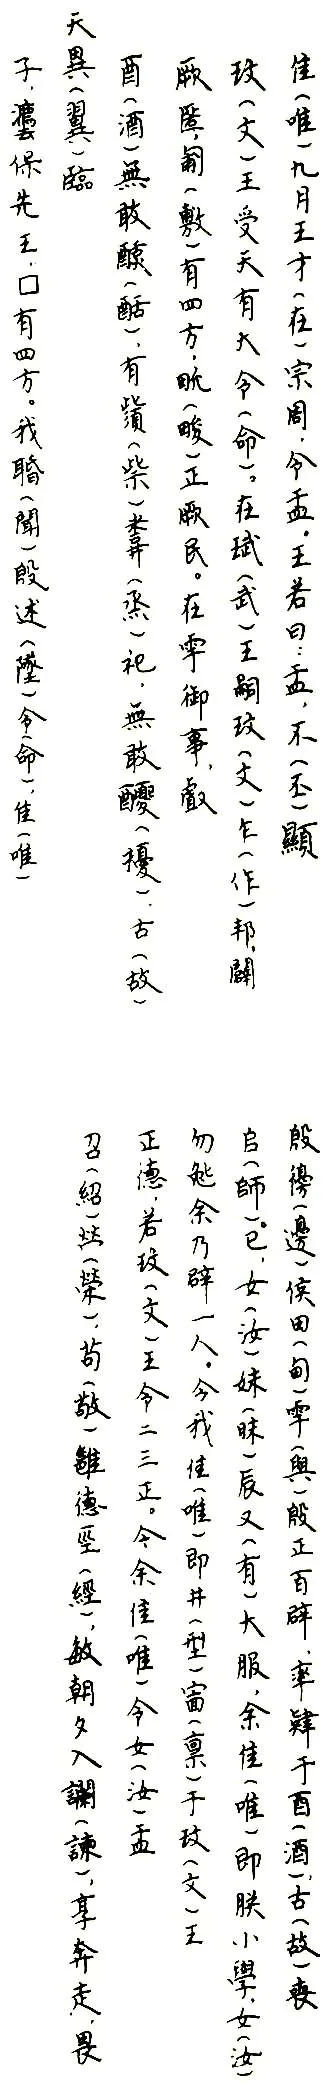 隹(唯)九月王才(在)宗周,令盂。王若曰:盂,不(丕)顯
玟(文)王受天有大令(命)。在珷(武)王嗣玟(文)乍(作)邦,闢
厥匿,匍(敷)有四方,畯(畯)正厥民。在雩御事,䖒
酉(酒)無敢酖(酣),有祡(柴)𤎩(烝)祀,無敢醻(擾),古(故)
天異(翼)臨
子,灋保先王,□有四方。我聞(聞)殷述(墜)令(命),隹(唯)
殷徬(邊)侯田(甸)雩(與)殷正百辟,率肄于酉(酒),古(故)喪
𠂤(師)。已,女(汝)妹(昧)辰又(有)大服,余隹(唯)即朕小學,女(汝)
勿㲋余乃辟一人。今我隹(唯)即井(型)㐭(禀)于玟(文)王
正德,若玟(文)王令二三正。今余隹(唯)令女(汝)盂
召(紹)焚(榮),茍(敬)雝德巠(經),敏朝夕入讕(諫),享奔走,畏